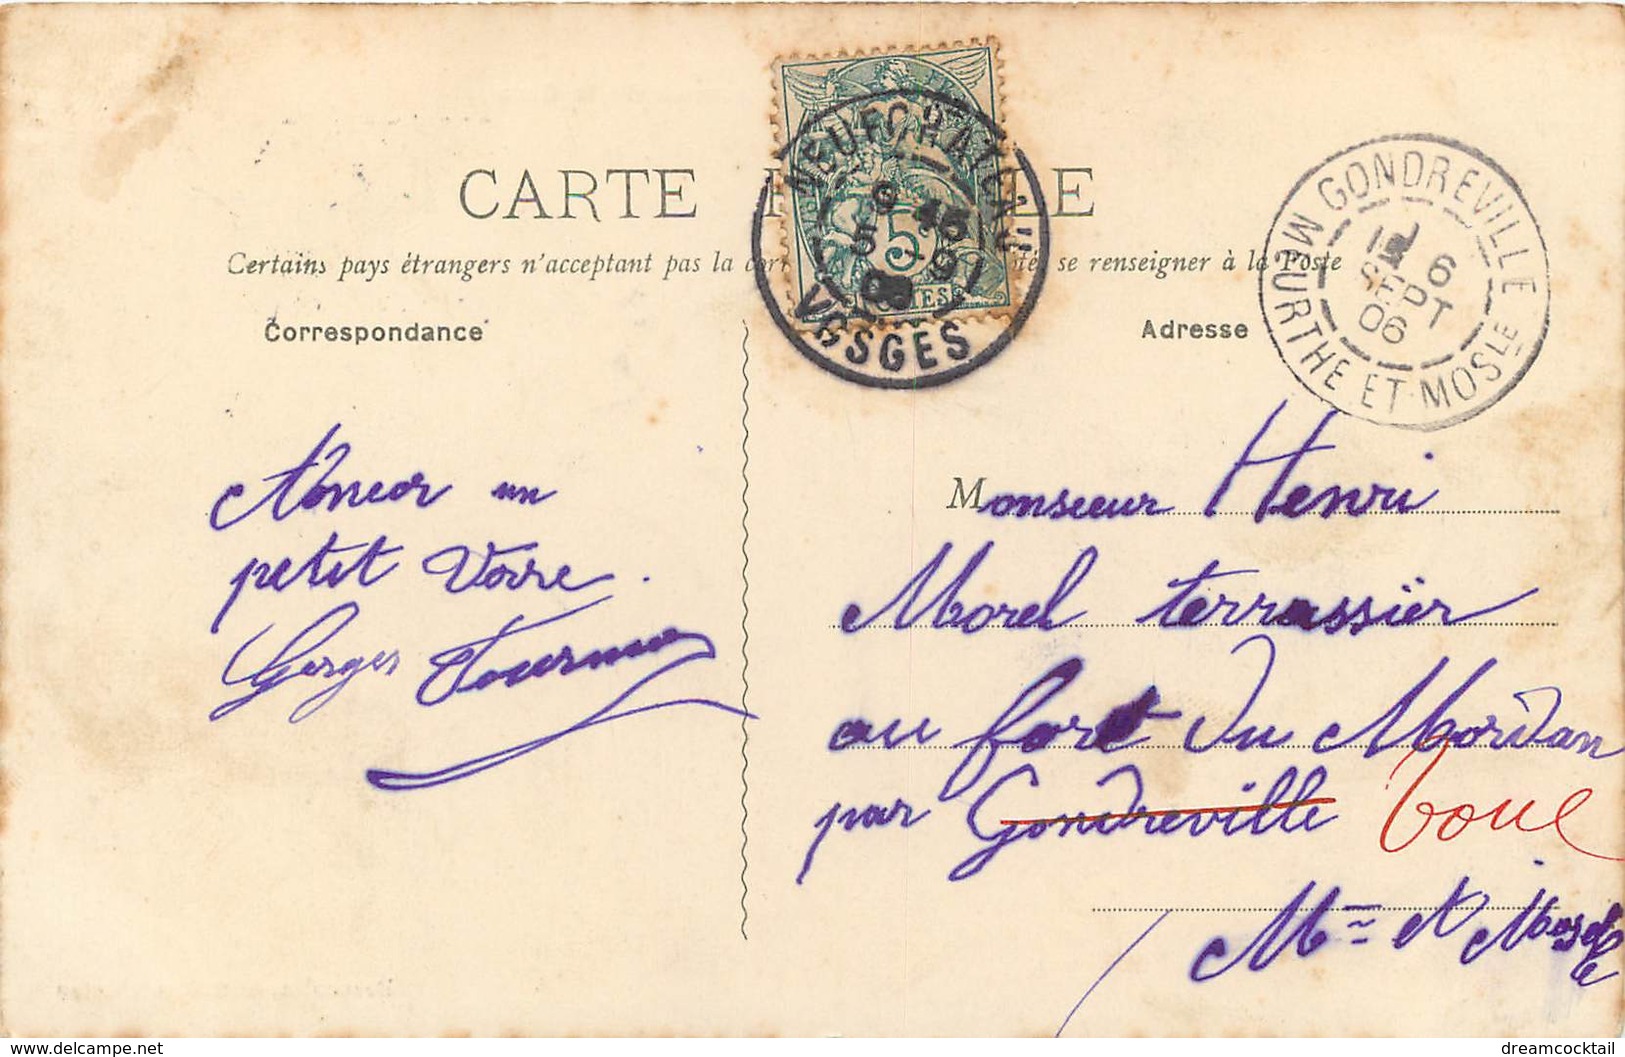 CARTE
Certains pays étrangers n'acceptant pas la se renseigner à la Poste
Correspondance
Adresse
NEUFCHATEAU
5 9
VOSGES
5
GONDREVILLE
6
SEPT
06
MEURTHE ET MOSLE
un
petit
Gorges
Monsieur Henri
Morel terrassier
au fort du Mordan
par Gondreville Toul
Mthe et Moselle
delcampe.net
dreamcocktail